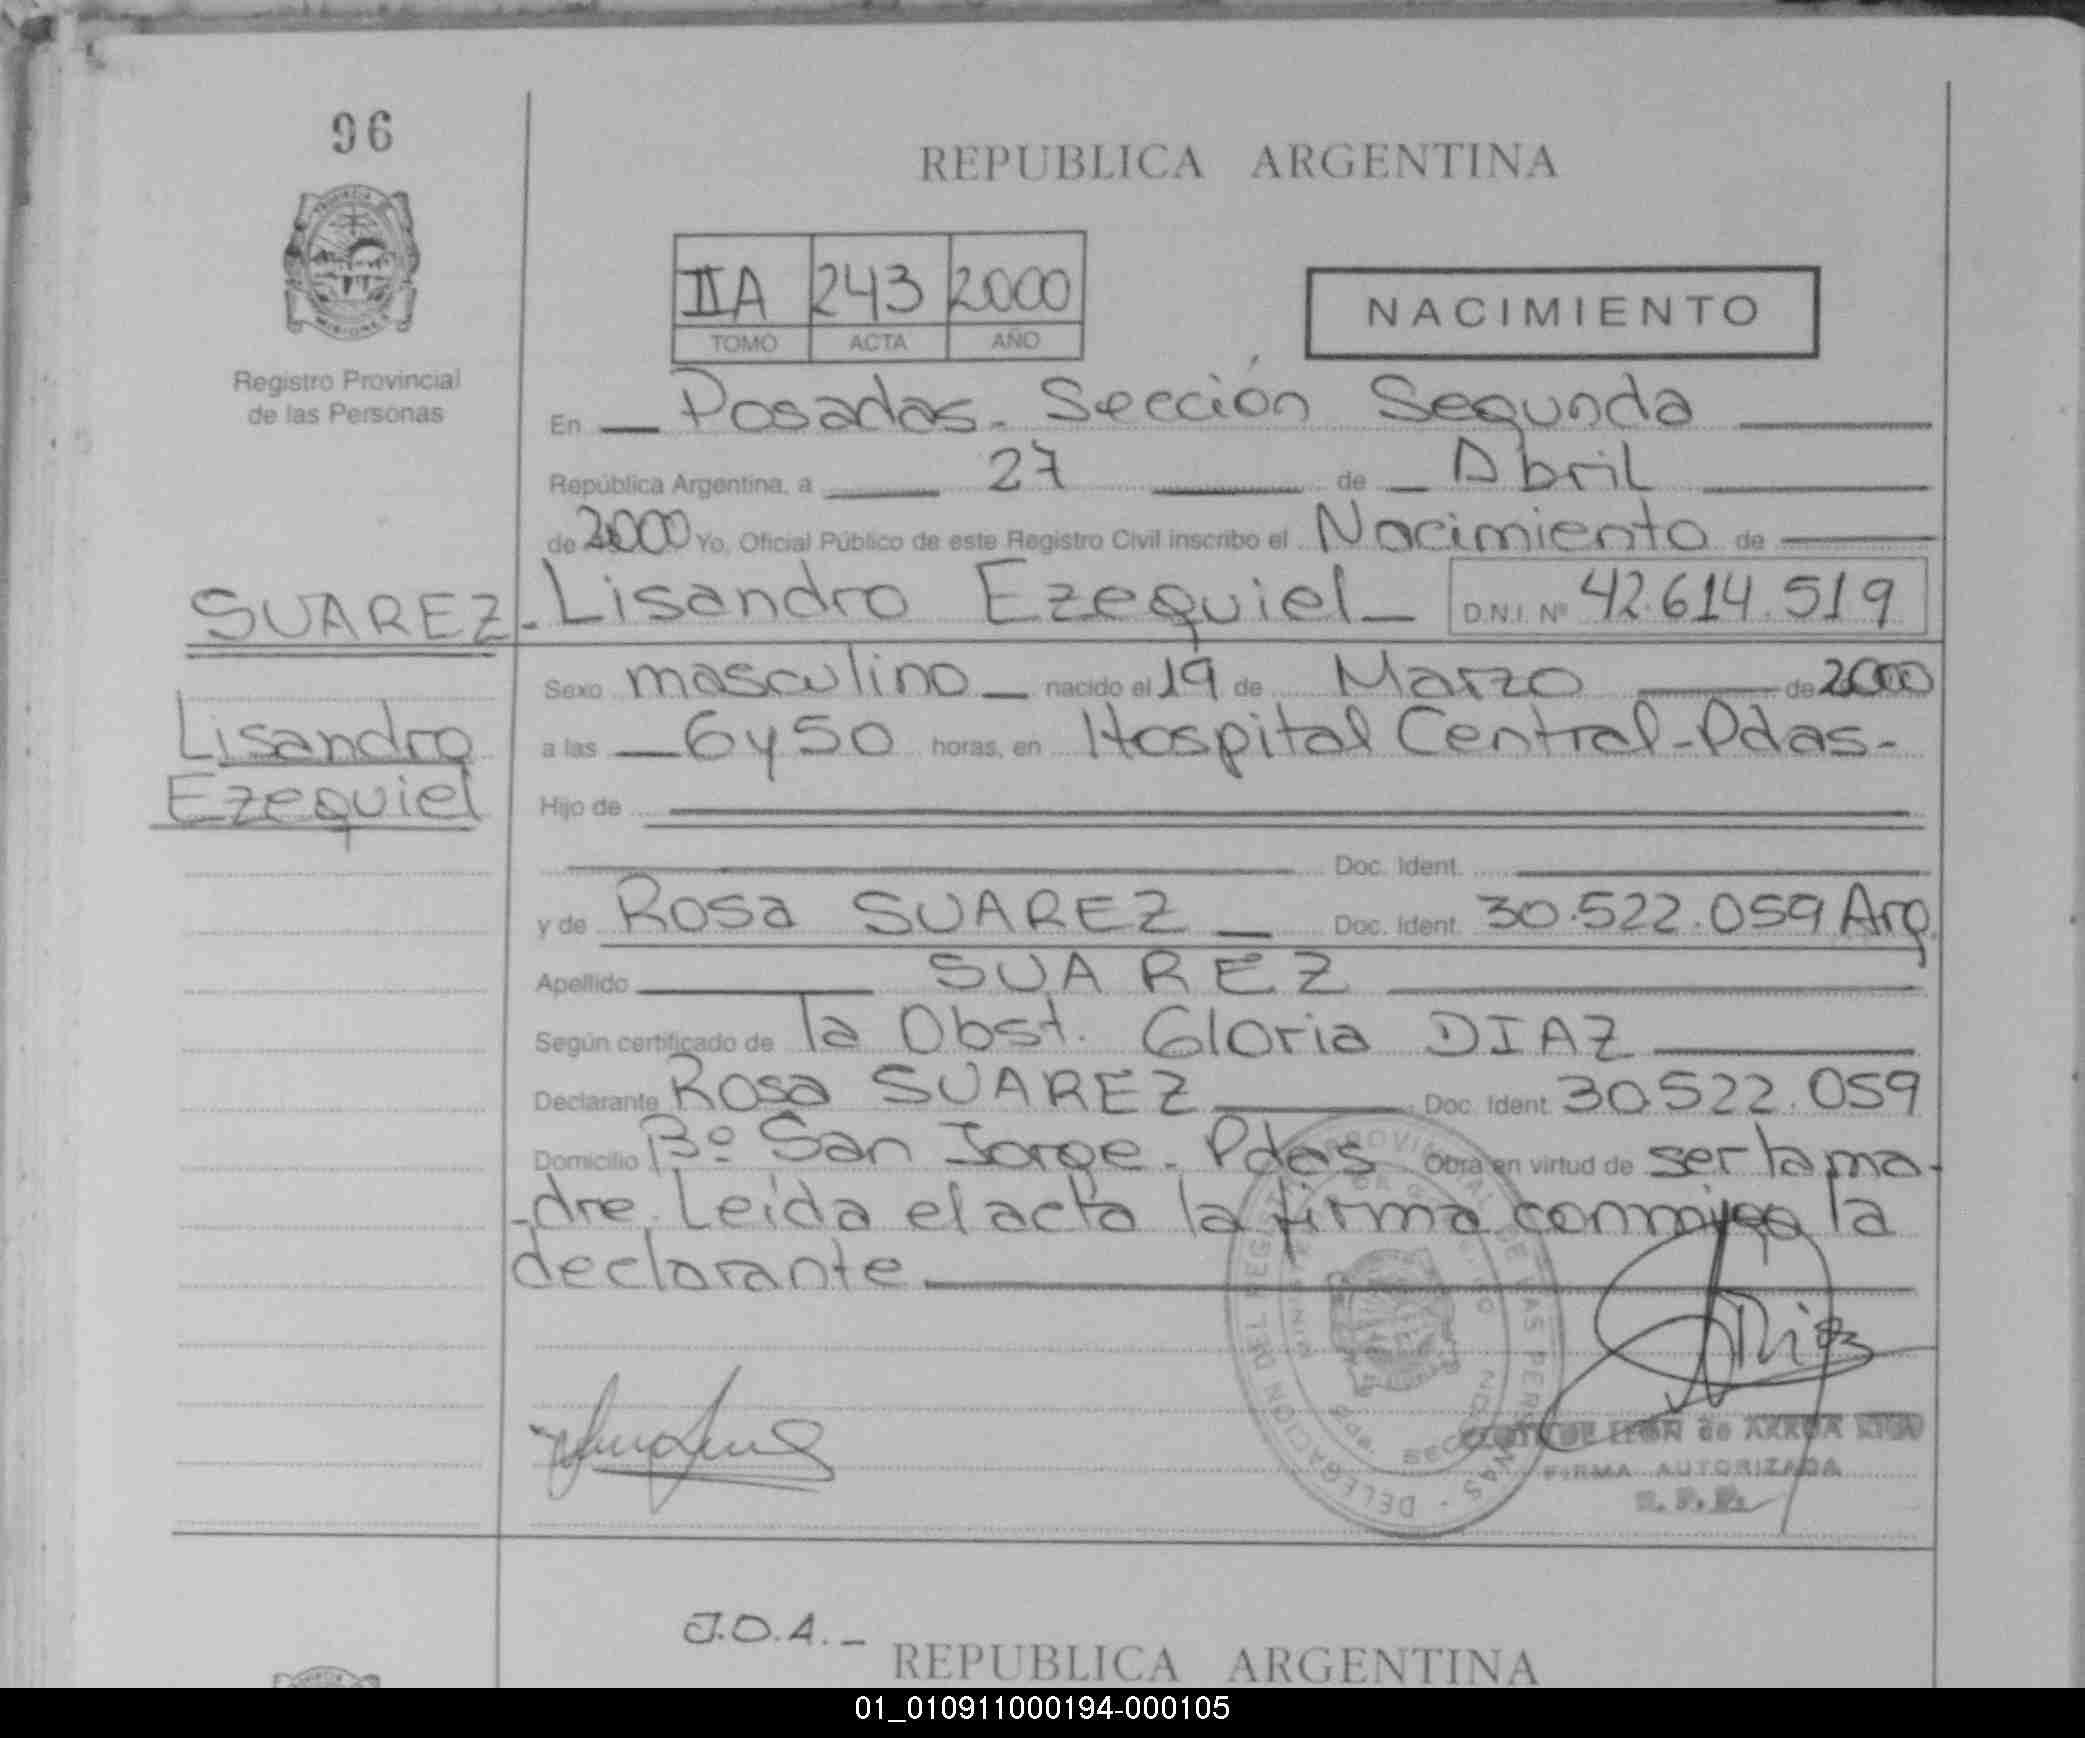 96
REPUBLICA ARGENTINA
IIA 243 2000
TOMO ACTA AÑO
NACIMIENTO
PROVINCIA
MISIONES
Registro Provincial
de las Personas
En Posadas. Sección Segunda
República Argentina, a 27 de Abril
de 2000 Yo, Oficial Público de este Registro Civil inscribo el Nacimiento de
SUAREZ - Lisandro Ezequiel D.N.I. Nº 42.614.519
Sexo masculino nacido el 19 de Marzo de 2000
Lisandro
Ezequiel
a las 6y50 horas, en Hospital Central-Pdas-
Hijo de
Doc. Ident.
y de Rosa SUAREZ Doc. Ident. 30.522.059 Arg.
Apellido SUAREZ
Según certificado de la Obst. Gloria DIAZ
Declarante Rosa SUAREZ Doc. Ident. 30.522.059
Domicilio Bº San Jorge. Pdas Obra en virtud de ser la ma-
-dre. Leída el acta la firma conmigo la
declarante
DELEGACION DEL REGISTRO PROVINCIAL DE LAS PERSONAS
LEON de ARRUA
FIRMA AUTORIZADA
J.O.A.-
REPUBLICA ARGENTINA
01_010911000194-000105